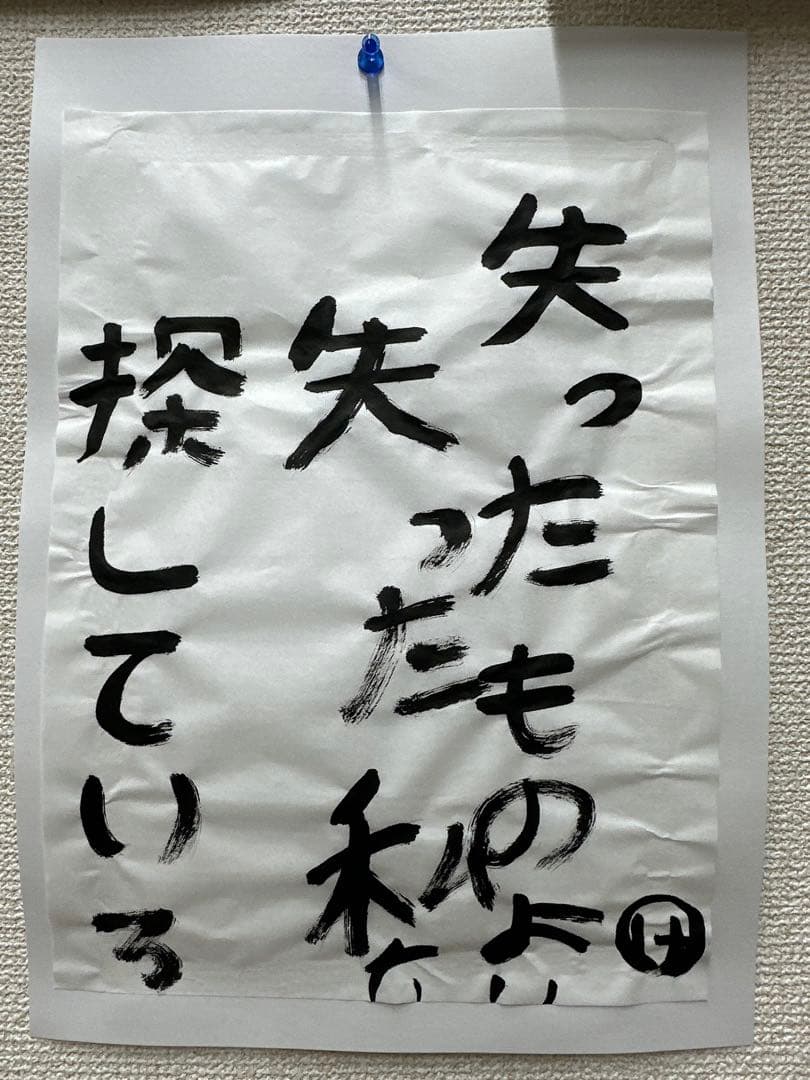 失ったものより
失った私を
探している